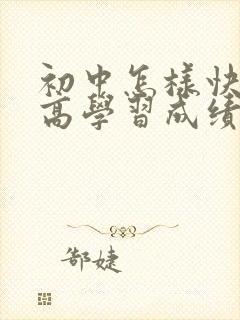 初中怎樣快
高學習成績
郜婕